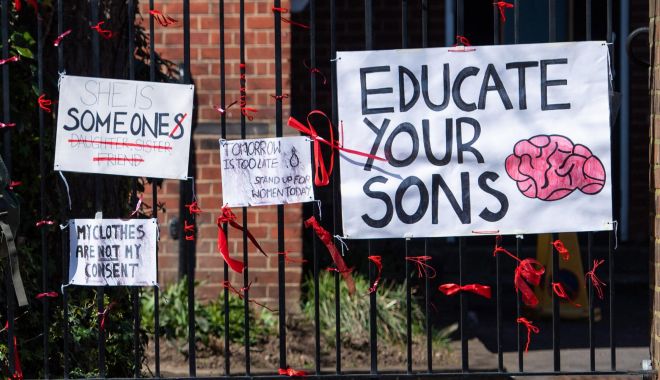 SHE IS
SOMEONES
DAUGHTER, SISTER
FRIEND
MY CLOTHES
ARE NOT MY
CONSENT
TOMORROW
IS TOO LATE
STAND UP FOR
WOMEN TODAY
EDUCATE
YOUR
SONS